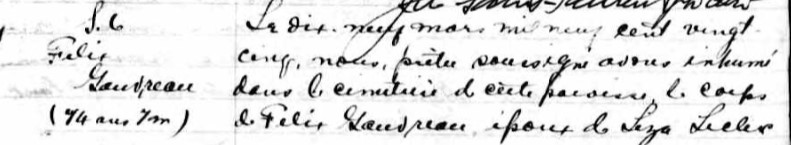 S. 6
Felix
Gaudreau
(74 ans 7m)
Le dix-neuf mars mil neuf cent vingt-
cinq, nous, prêtre soussigné avons inhumé
dans le cimetière de cette paroisse, le corps
de Felix Gaudreau, époux de Leza Lecler